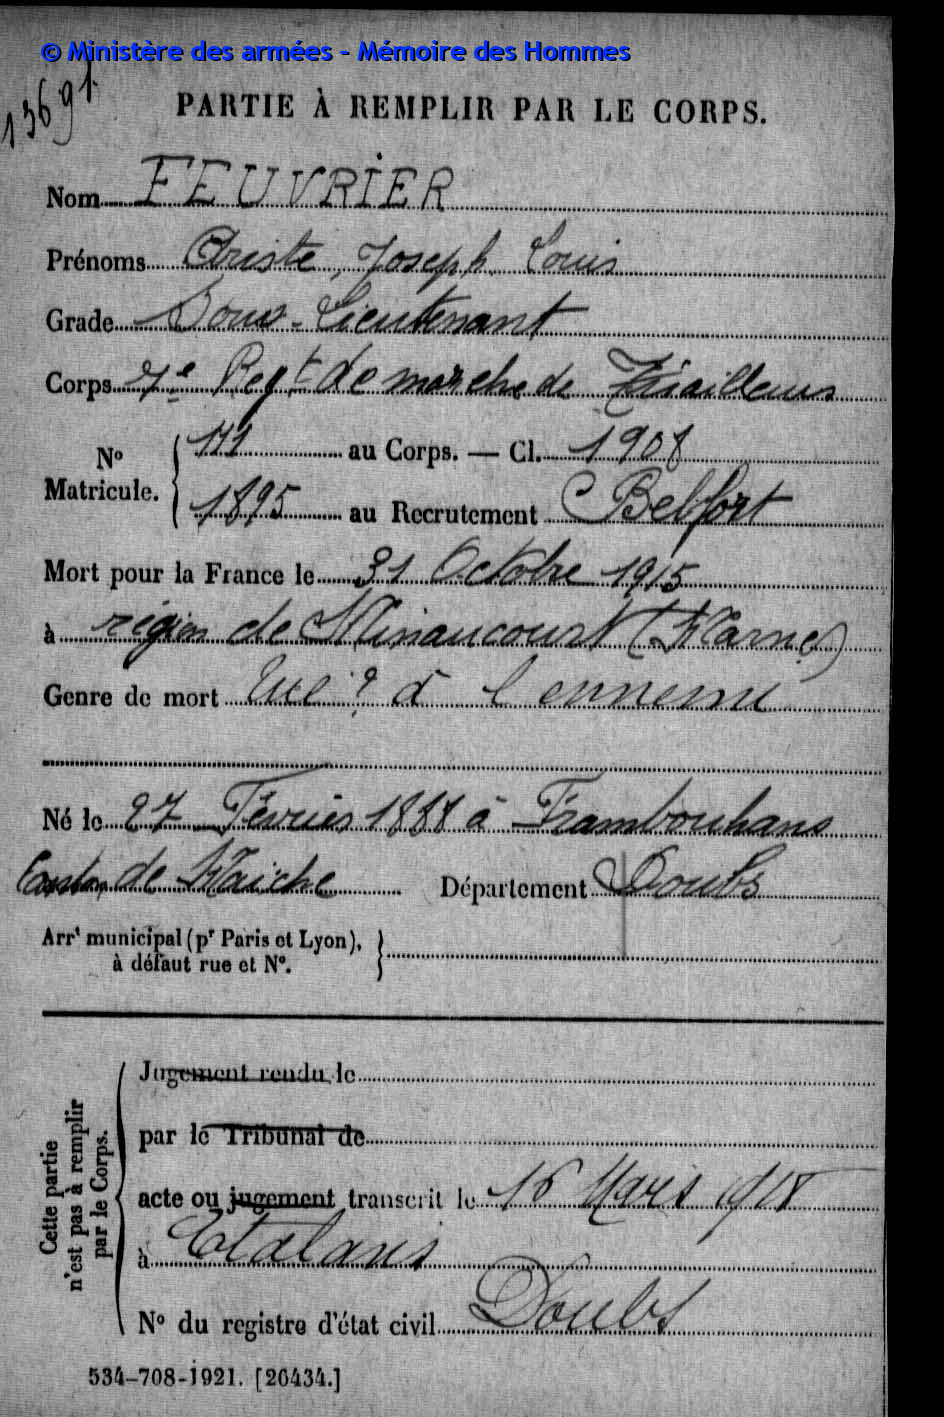 © Ministère des armées - Mémoire des Hommes
13691
PARTIE À REMPLIR PAR LE CORPS.
Nom FEUVRIER
Prénoms Ariste, Joseph Louis
Grade Sous-Lieutenant
Corps 7e Regt de marche de Tirailleurs
No Matricule. 171 au Corps. — Cl. 1908
1895 au Recrutement Belfort
Mort pour la France le 31 Octobre 1915
à région de Minaucourt (Marne)
Genre de mort Tué à l'ennemi
Né le 27 Février 1888 à Frambouhans
Canton de Maiche Département Doubs
Arrt municipal (pr Paris et Lyon),
à défaut rue et No.
Cette partie
n'est pas à remplir
par le Corps.
Jugement rendu le
par le Tribunal de
acte ou jugement transcrit le 16 Mars 1918
à Etalans
Doubs
No du registre d'état civil
534-708-1921. [26434.]